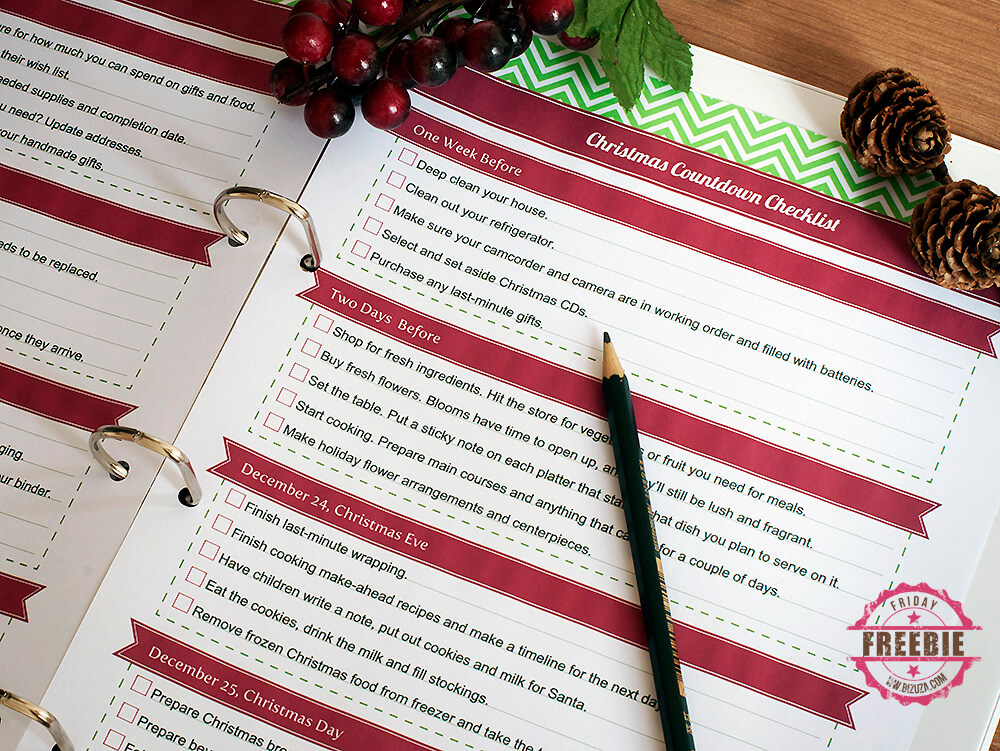 ure for how much you can spend on gifts and food.
their wish list.
eeded supplies and completion date.
ou need? Update addresses.
your handmade gifts.
eds to be replaced.
once they arrive.
ging.
our binder.
Christmas Countdown Checklist
One Week Before
Deep clean your house.
Clean out your refrigerator.
Make sure your camcorder and camera are in working order and filled with batteries.
Select and set aside Christmas CDs.
Purchase any last-minute gifts.
Two Days Before
Shop for fresh ingredients. Hit the store for veget or fruit you need for meals.
Buy fresh flowers. Blooms have time to open up, an y'll still be lush and fragrant.
Set the table. Put a sticky note on each platter that sta that dish you plan to serve on it.
Start cooking. Prepare main courses and anything that ca for a couple of days.
Make holiday flower arrangements and centerpieces.
December 24, Christmas Eve
Finish last-minute wrapping.
Finish cooking make-ahead recipes and make a timeline for the next da
Have children write a note, put out cookies and milk for Santa.
Eat the cookies, drink the milk and fill stockings.
Remove frozen Christmas food from freezer and take the
December 25, Christmas Day
Prepare Christmas bre
Prepare bev
FRIDAY
FREEBIE
WW.BIZUZA.COM